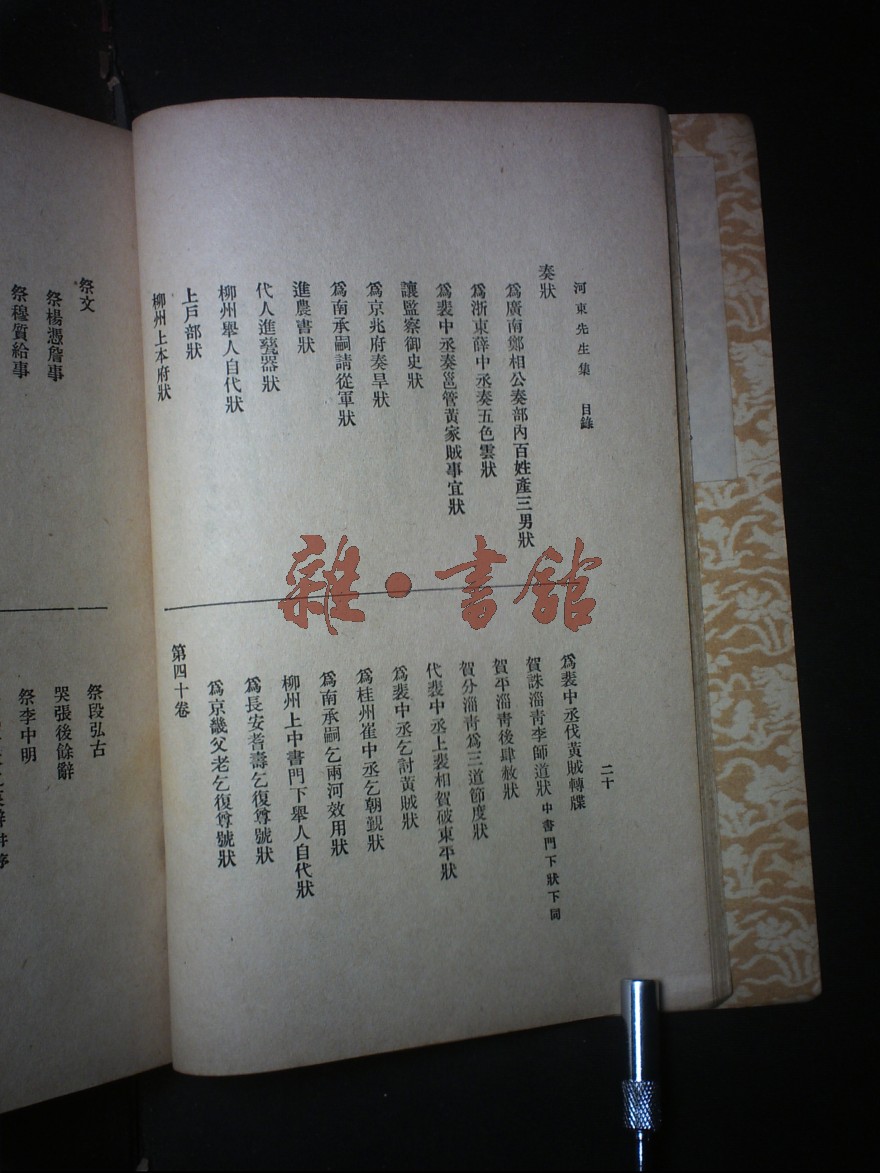 河東先生集　目錄
二十
奏狀
爲廣南鄭相公奏部內百姓產三男狀
爲浙東薛中丞奏五色雲狀
爲裴中丞奏邕管黃家賊事宜狀
讓監察御史狀
爲京兆府奏旱狀
爲南承嗣請從軍狀
進農書狀
代人進甆器狀
柳州舉人自代狀
上戶部狀
柳州上本府狀
爲裴中丞伐黃賊轉牒
賀誅淄靑李師道狀中書門下狀下同
賀平淄靑後肆赦狀
賀分淄靑爲三道節度狀
代裴中丞上裴相賀破東平狀
爲裴中丞乞討黃賊狀
爲桂州崔中丞乞朝覲狀
爲南承嗣乞兩河效用狀
柳州上中書門下舉人自代狀
爲長安耆壽乞復尊號狀
爲京畿父老乞復尊號狀
第四十卷
祭文
祭楊憑詹事
祭穆質給事
祭段弘古
哭張後餘辭
祭李中明
雜·書館